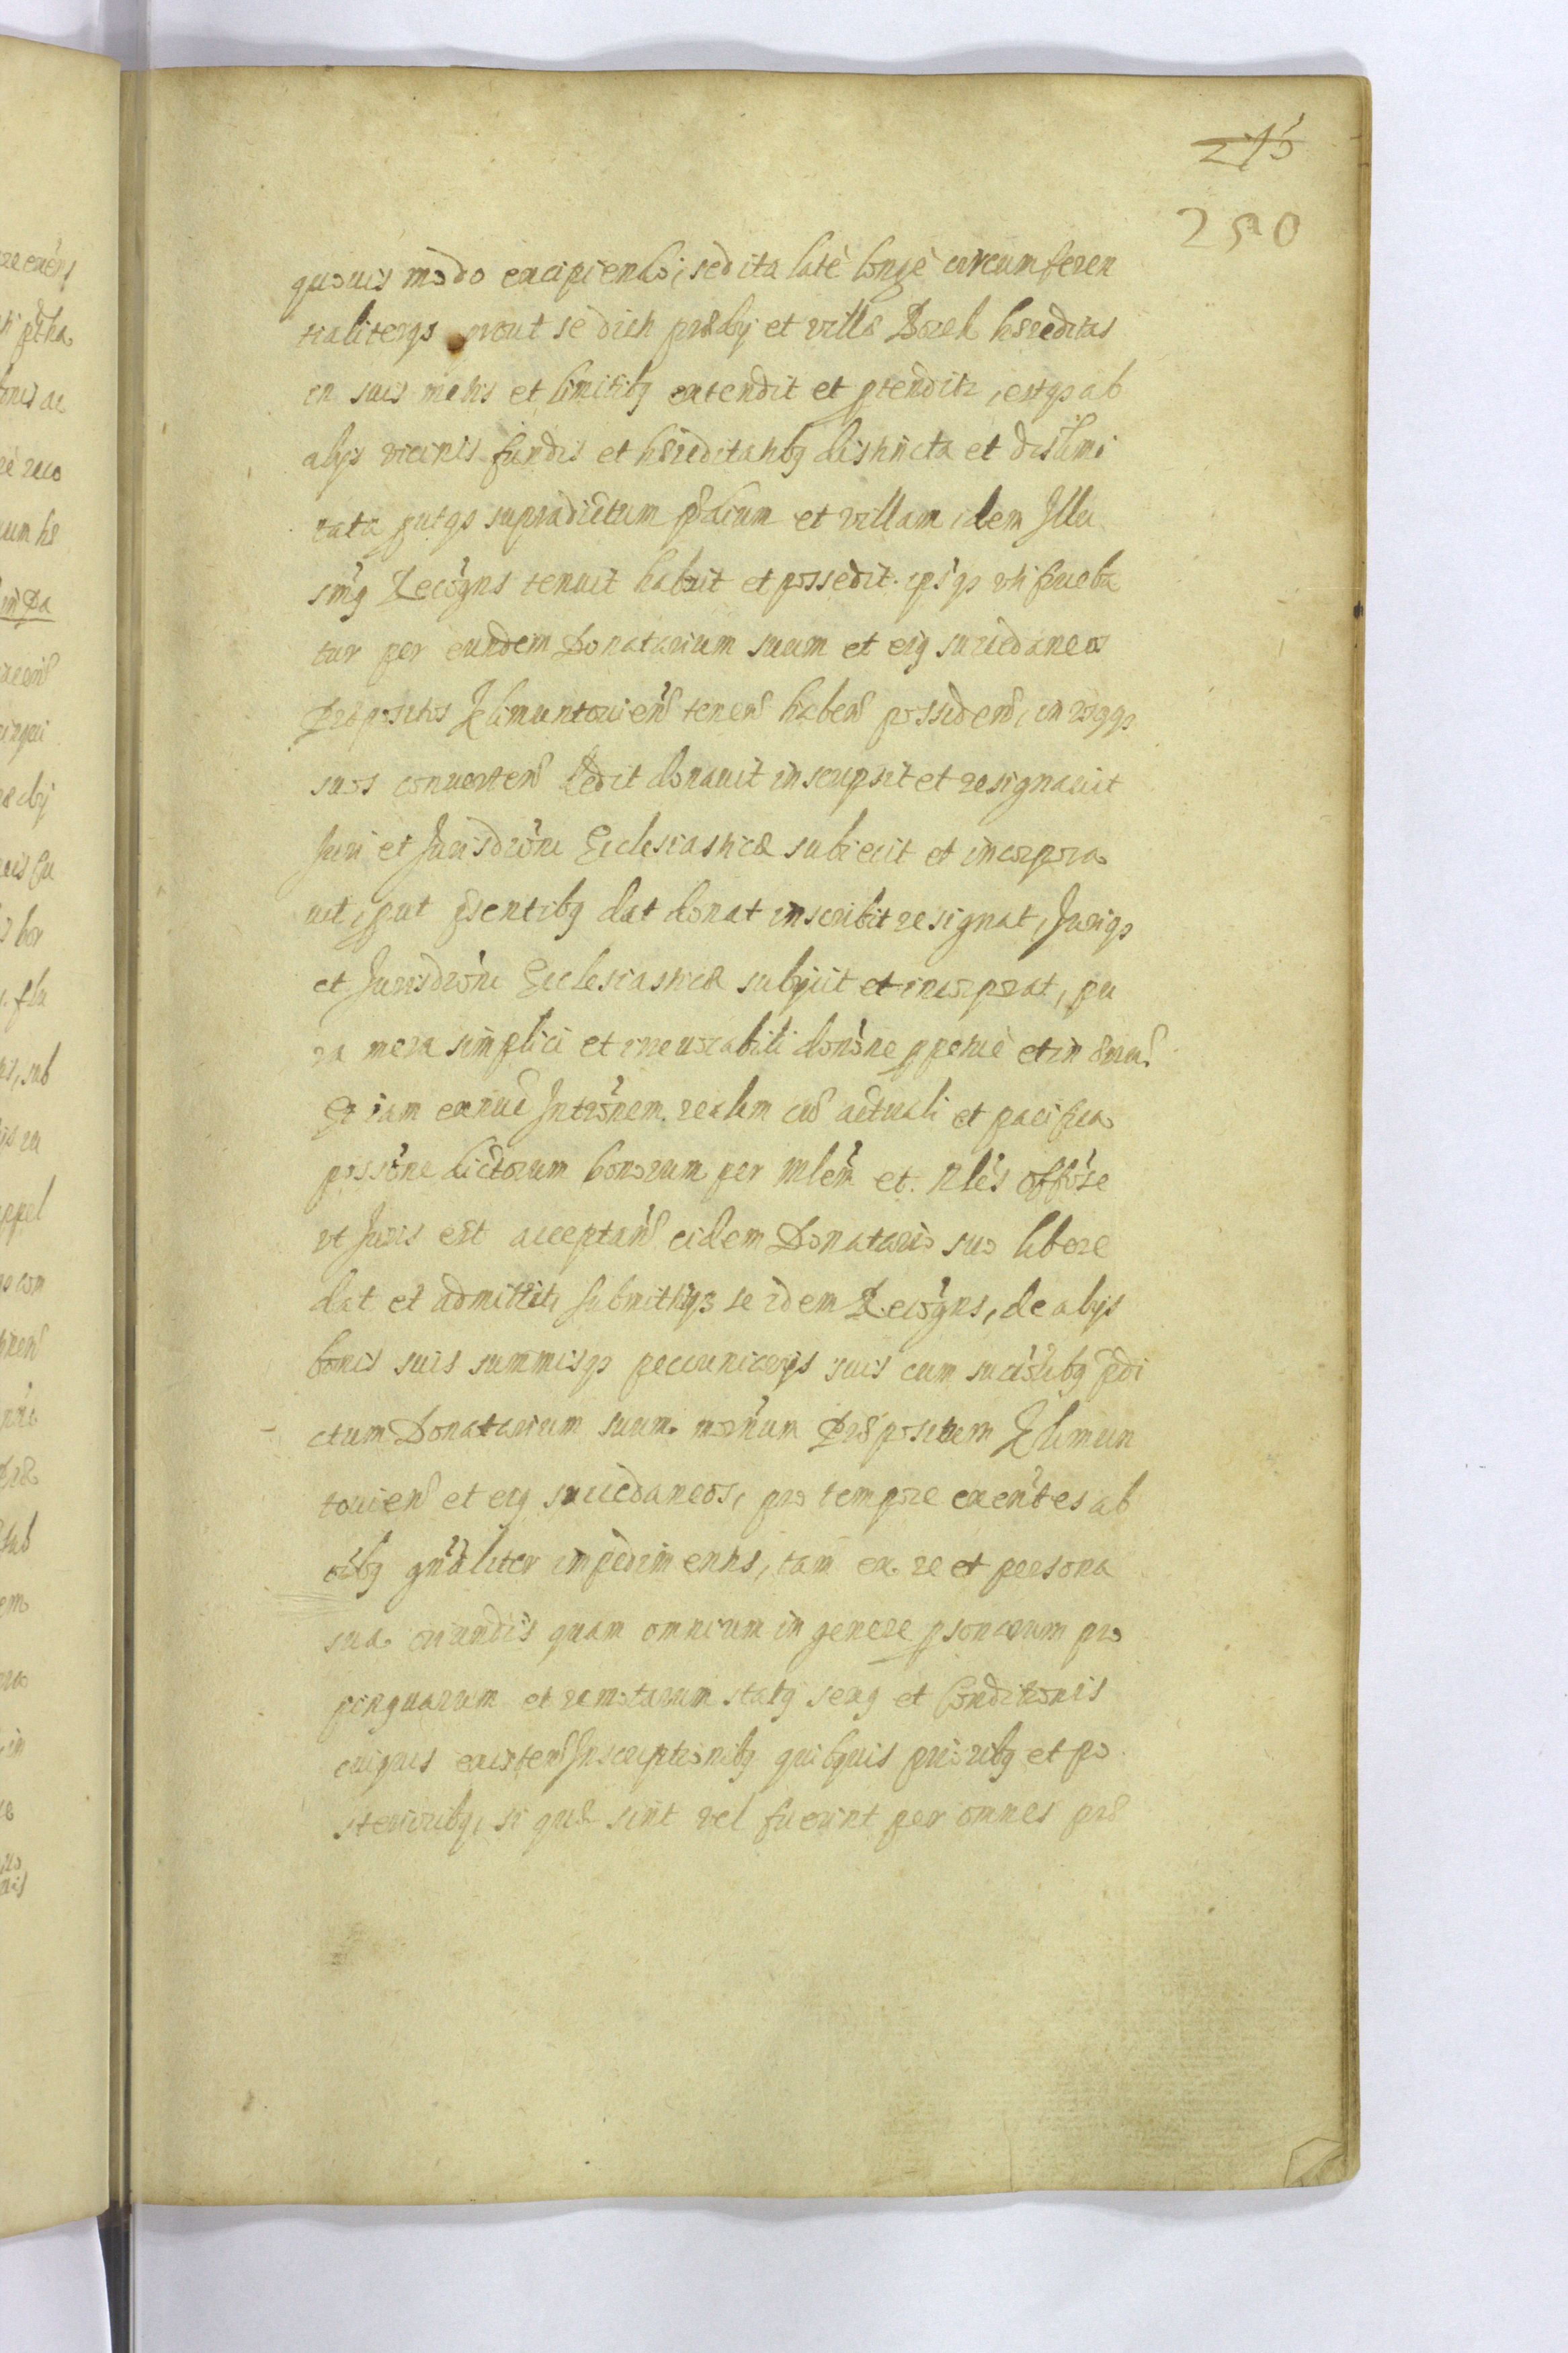 215
250
quouis modo excipiendo, sed ita latè longè circumferen
tialiterqȝ prout se dicti prædij et villæ Dorek hæreditas
in suis metis et limitibq extendit et ptenditr, estqȝ ab
alijs vicinis fundis et hæreditatibq distincta et dislimi
tata putqȝ supradictum pdium et villam idem Illu
smq Recogns tenuit habuit et possedit ipsqȝ vti frueba
tur per eundem Donatarium suum et eiq succedaneos
Præpositos Klimuntouien tenen haben possiden, in vsqȝ
suos conuerten dedit donauit inscripsit et resignauit
Juri et Jurisdroni Ecclesiasticæ subiecit et incorpora
uit, put psentibq dat donat inscribit resignat, Juriqȝ
et Jurisdroni Ecclesiasticæ subijcit et incorporat, pu
ra mera simplici et irreuocabili donone ppetuè et in æuu
Et iam exnuc Intronem realem cū actuali et pacifica
possone dictorum bonorum per mlem et nles offose
vt Juris est acceptan eidem Donatario suo libere
dat et admittit, submittitqȝ se idem Recogns, de alijs
bonis suis summisqȝ pecuniarijs suis cum succoribq pdi
ctum Donatarium suum mornum Præpositum Klimun
touien et eiq succedaneos, pro tempore exentes ab
oibq gnaliter impedimentis, tam ex re et persona
sua oriundis quam omnium in genere psonarum pro
pinquarum et remotarum statq sexq et conditionis
cuiquis existen Inscriptionibq quibquis prioribq et po
sterioribq, si quæ sint vel fuerint per omnes præ